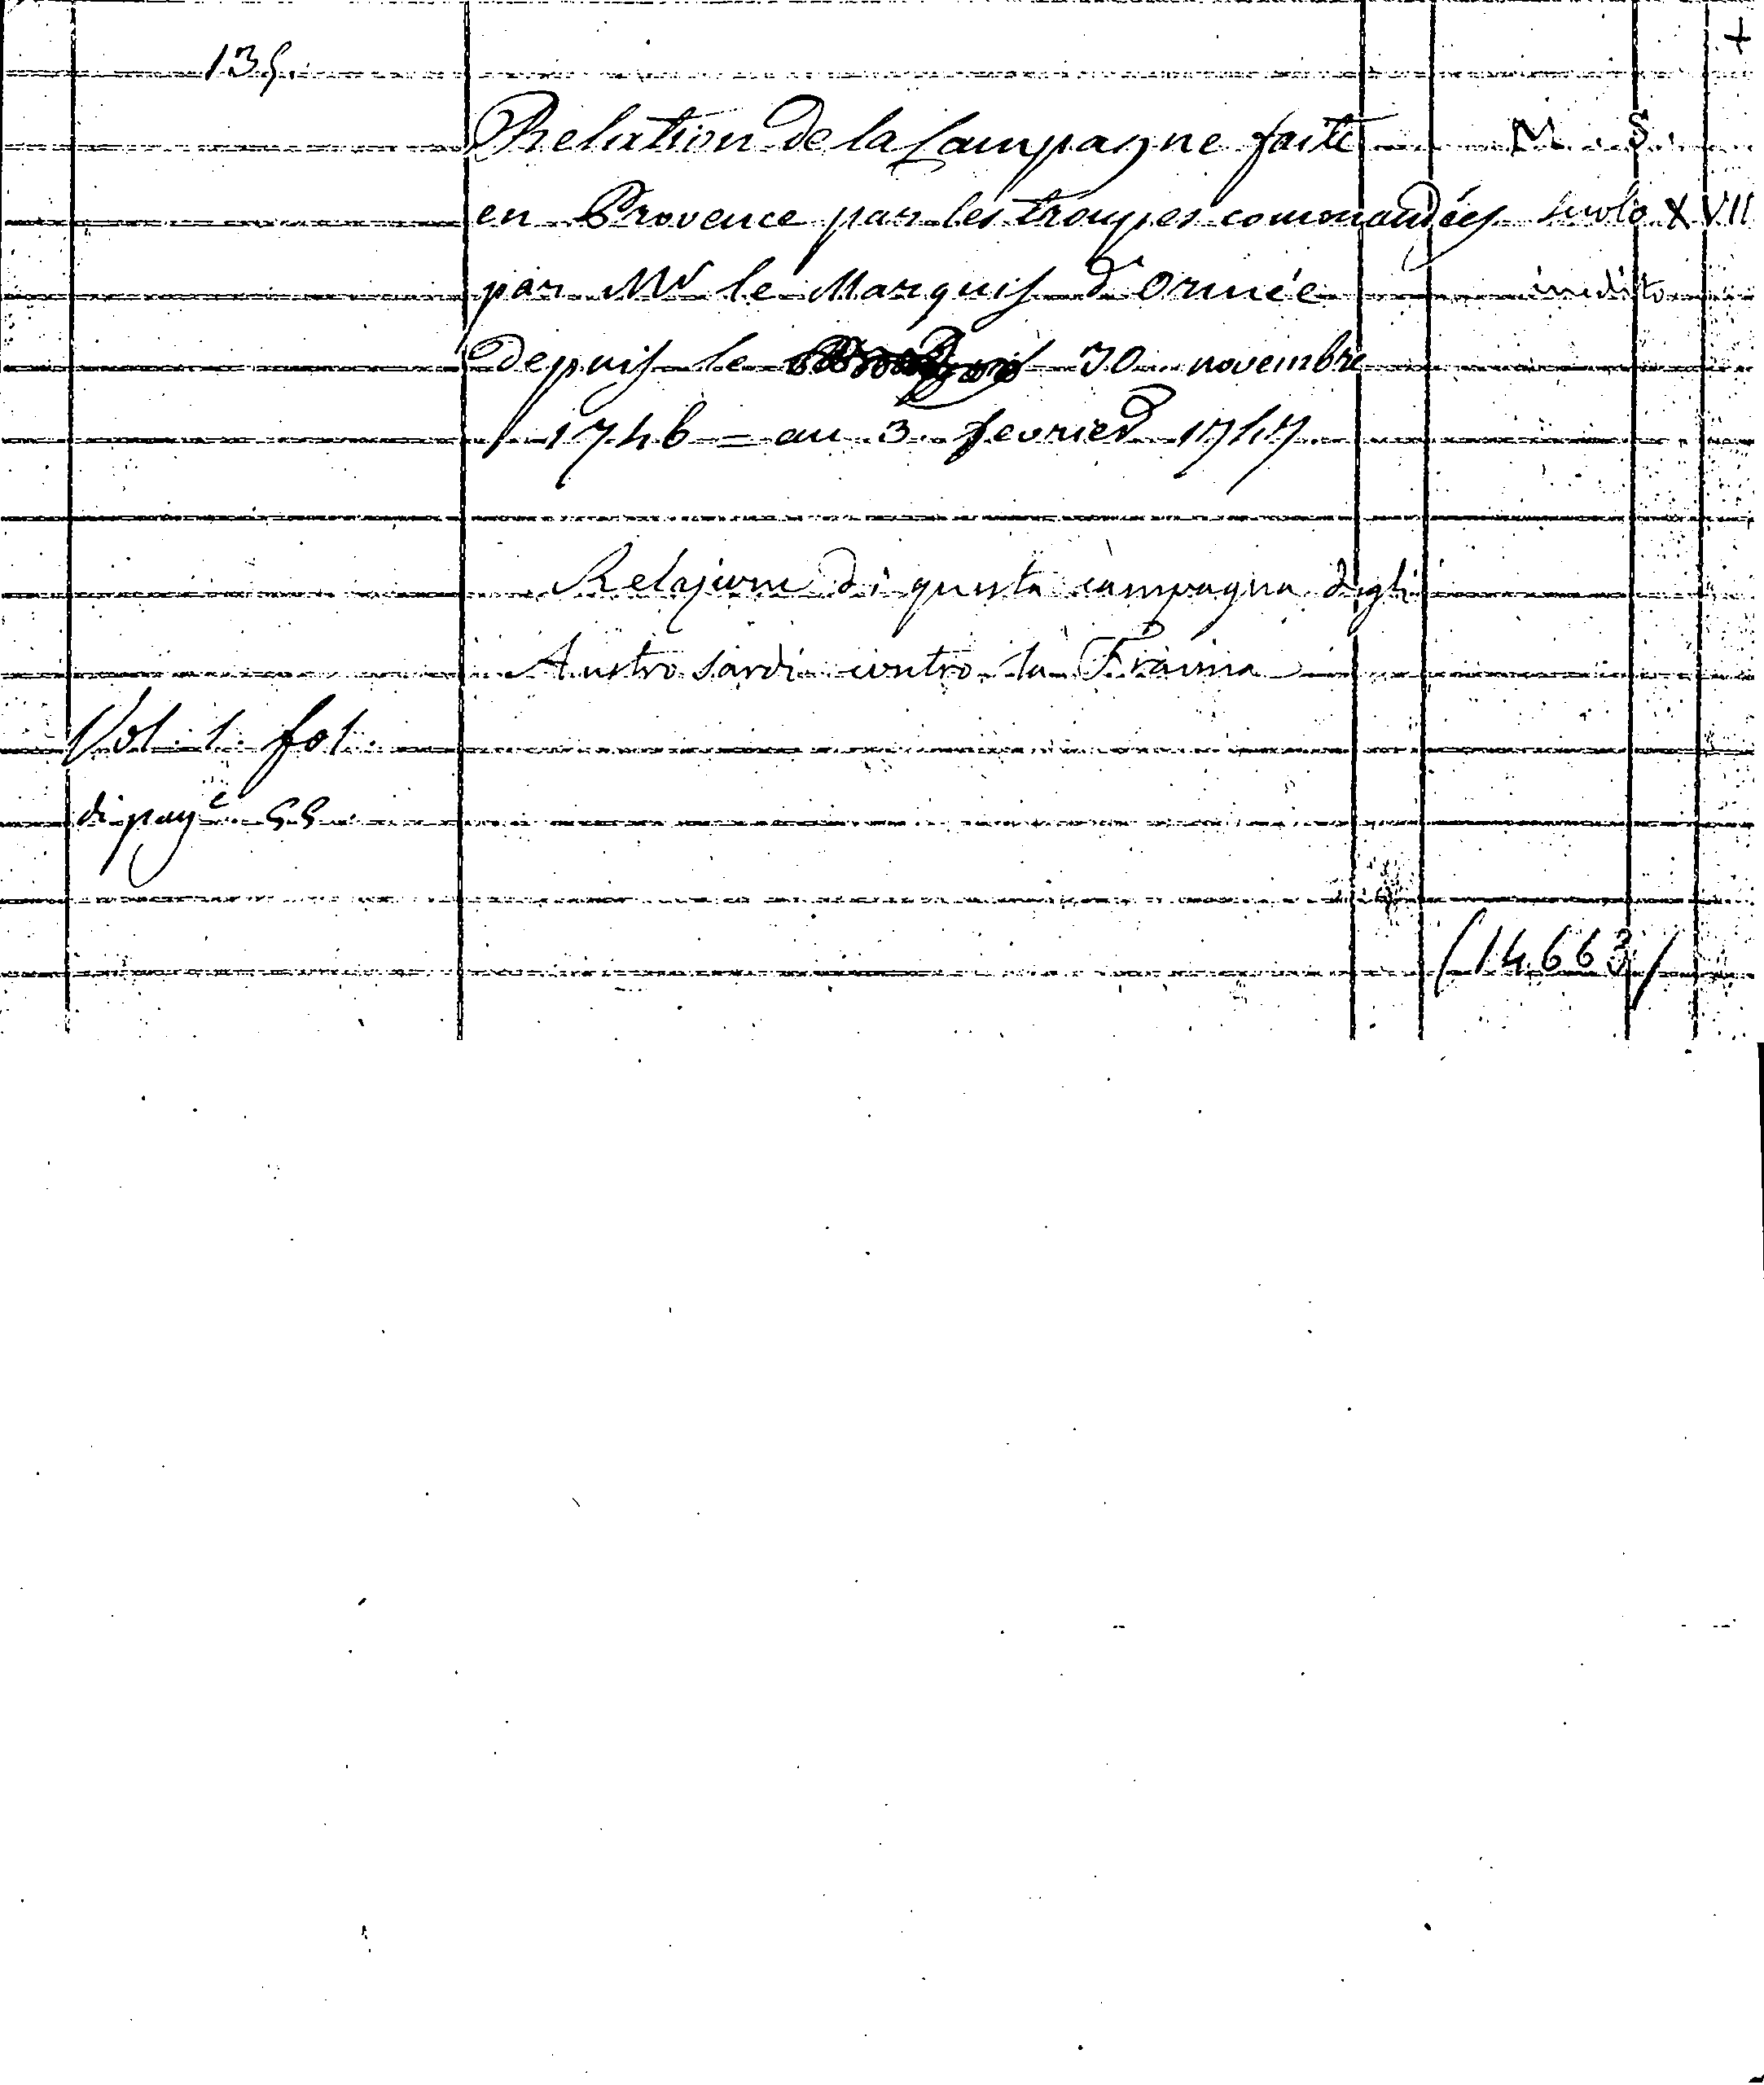 135.
+
Relation de la Campagne faite
M. S.
en Provence par les troupes commandées
secolo XVII
par Mr le Marquis d'Ormée
inedito
depuis le 30 novembre
1746 = au 3 fevrier 1747
Relazione di questa campagna degli
Austro Sardi contro la Francia
Vol. 1. fol.
di page 55.
(14663)